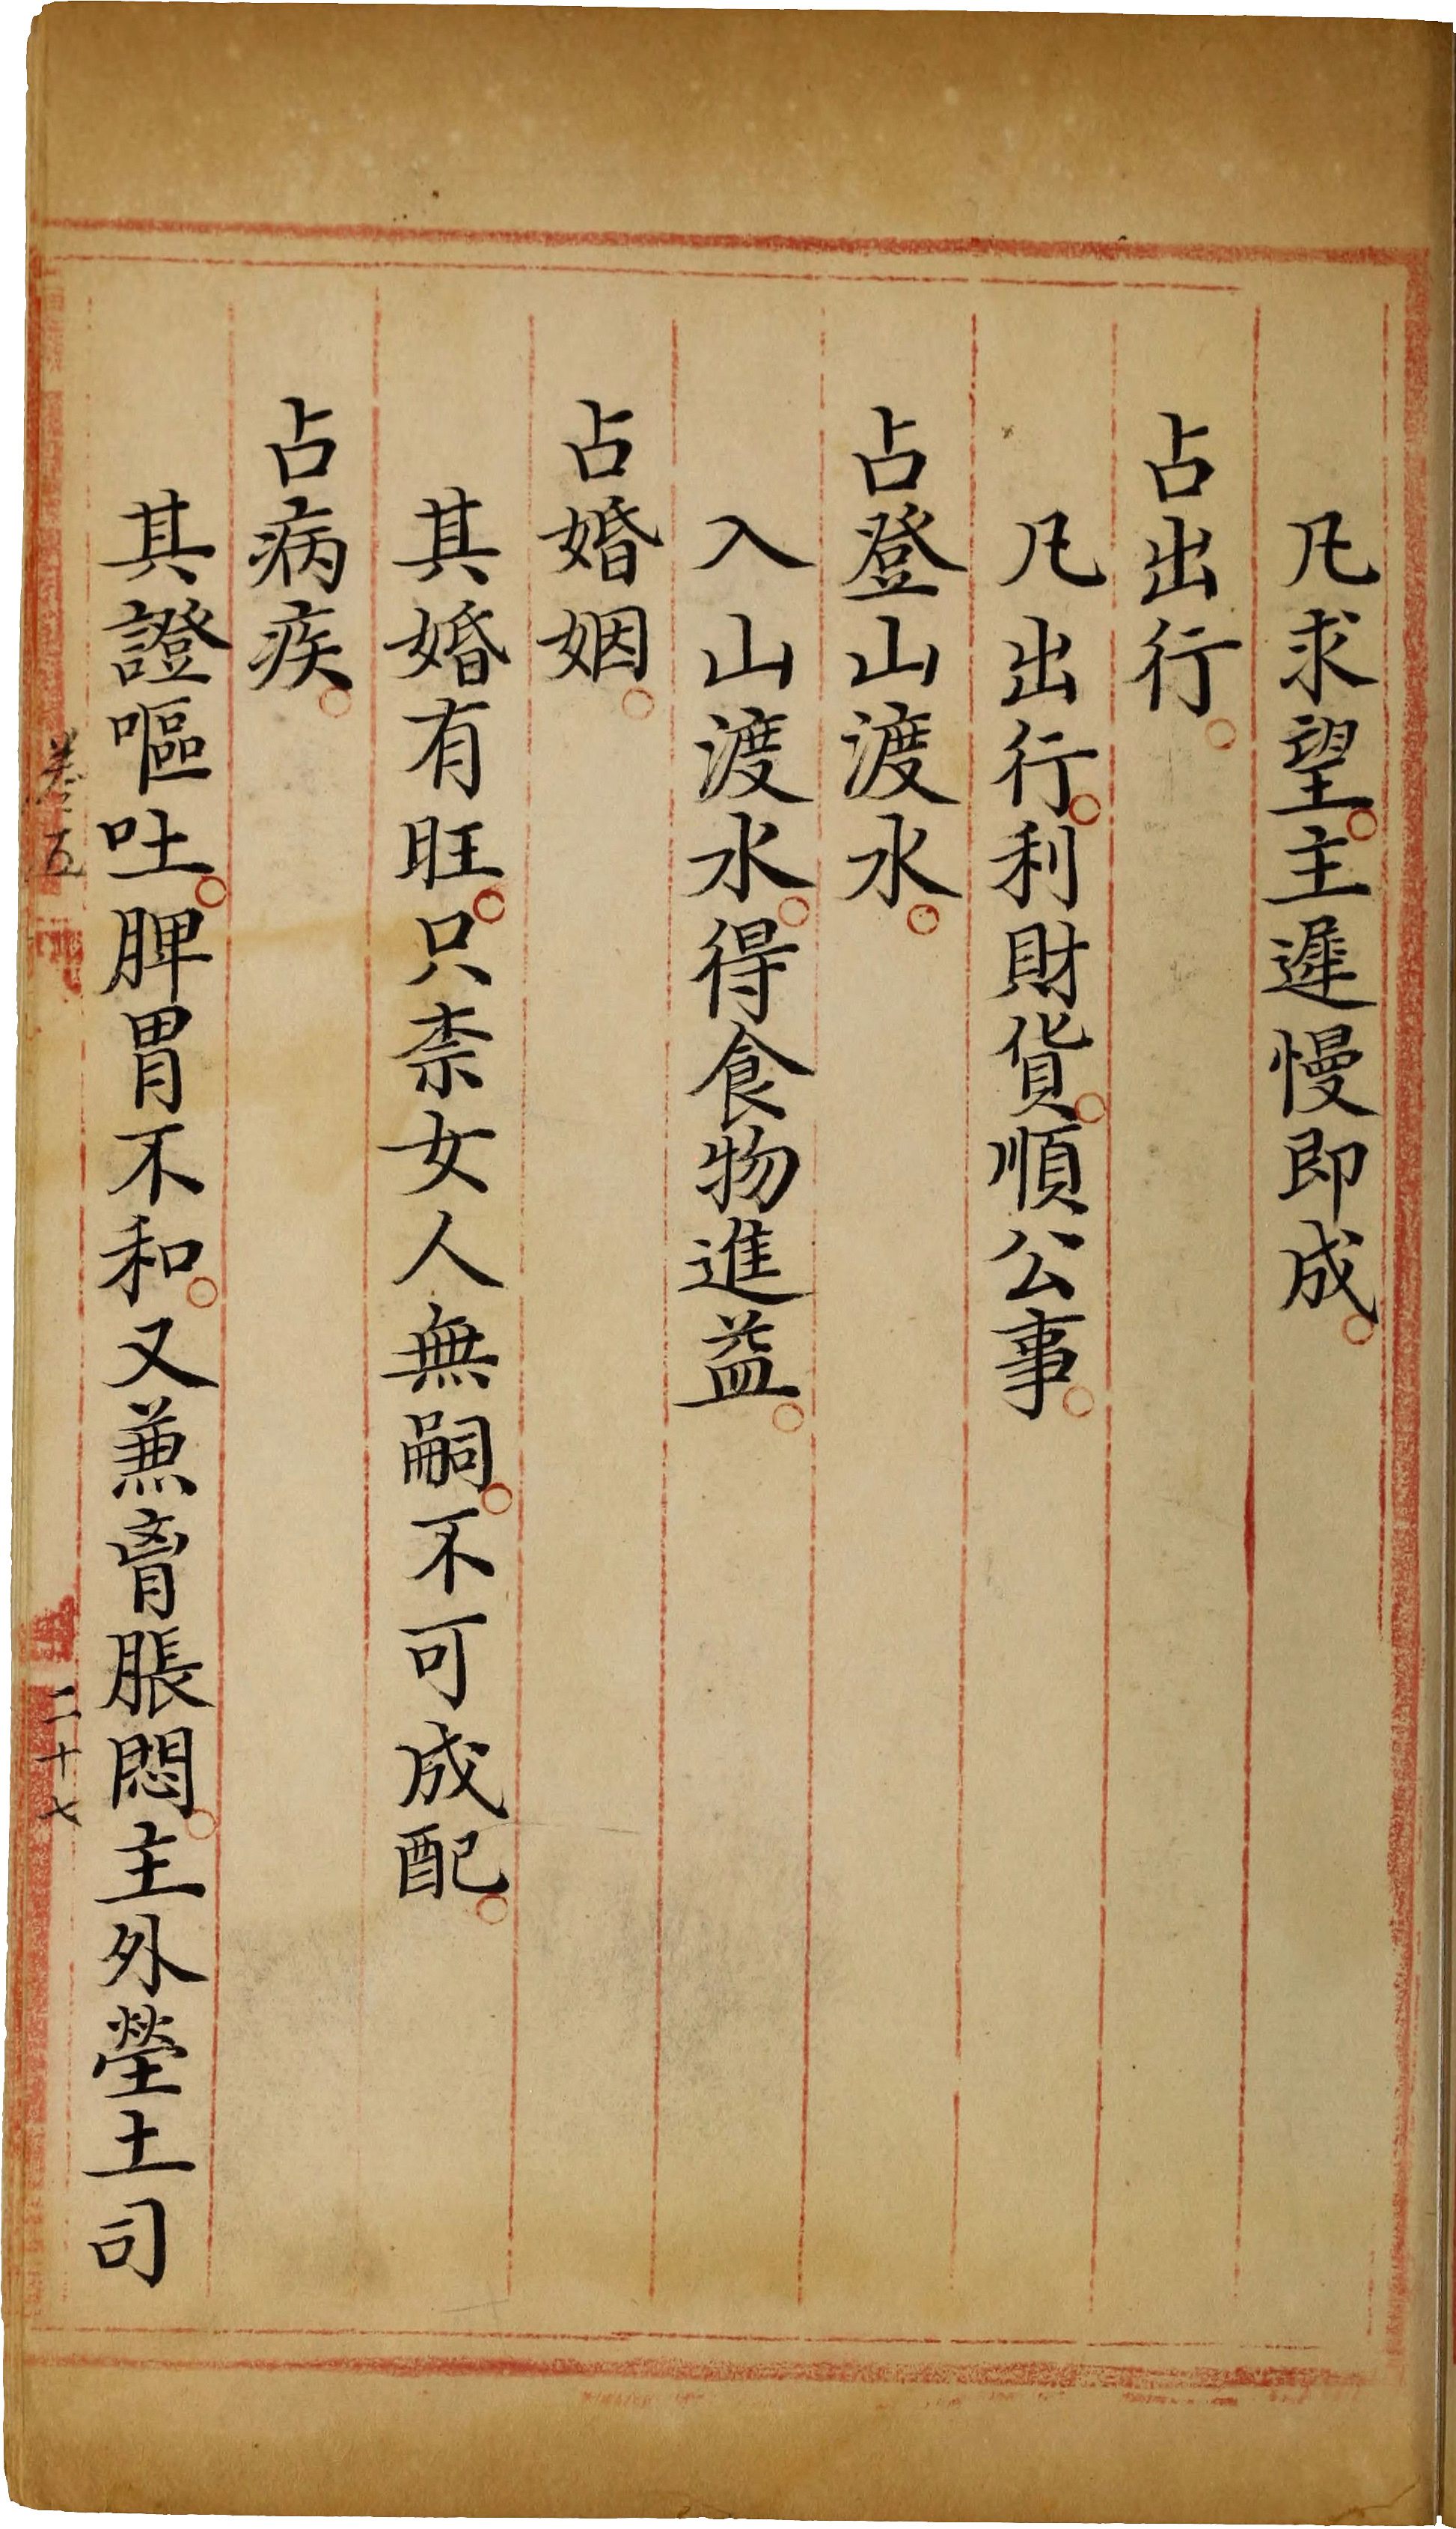 凡求望。主遲慢即成。
占出行。
凡出行。利財貨。順公事。
占登山渡水。
入山渡水。得食物進益。
占婚姻。
其婚有旺。只柰女人無嗣。不可成配。
占病疾。
其證嘔吐。脾胃不和。又兼胷脹悶。主外塋土司
卷五
二十七